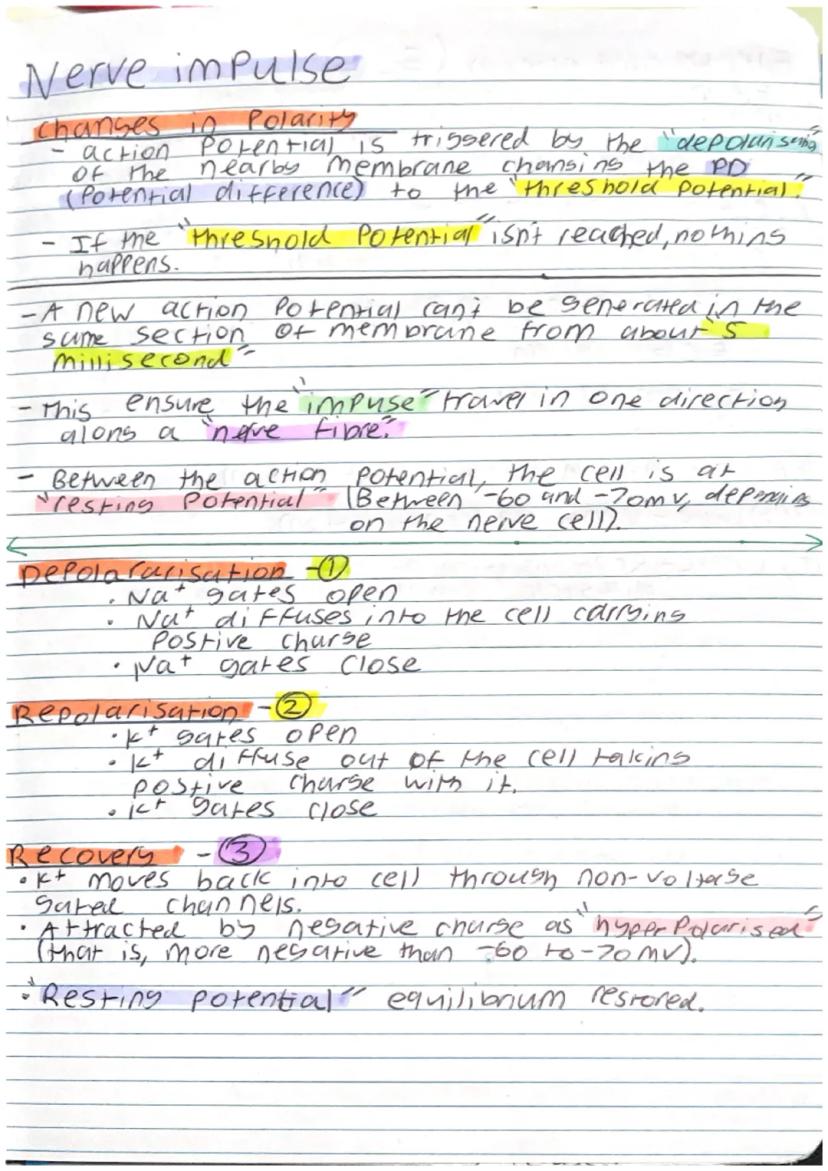 Nerve impulse
Changes in Polarity
- action Potential is triggered by the "depolarising
of the nearby membrane changing the PD
(Potential difference) to the "threshold Potential."
- If the "threshold Potential" isn't reached, nothing
happens.
- A new action Potential can't be generated in the
same section of membrane from about "5
millisecond"
- This ensure the "impuse" travel in one direction
along a "nerve fibre."
- Between the action potential, the cell is at
"resting Potential" (Between -60 and -70mv, depending
on the nerve cell).
Depolararisation - ①
• Na+ gates open
• Na+ diffuses into the cell carrying
Postive charge
• Na+ gates close
Repolarisation - ②
• K+ gates open
• K+ diffuse out of the cell taking
postive charge with it.
• K+ gates close
Recovery - ③
• K+ moves back into cell through non-voltage
gated channels.
• Attracted by negative charge as "hyperPolarised"
(that is, more negative than -60 to -70mv).
• "Resting potential" equilibrium restored.